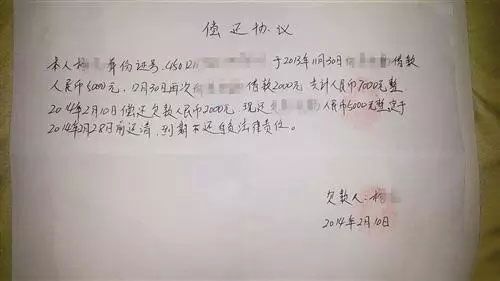 偿还协议
本人柳 身份证号:450121 于2013年11月30日向 借款
人民币5000元,12月30日再次向 借款2000元 共计人民币7000元整
2014年2月10日偿还欠款人民币2000元 现还 人民币5000元整定于
2014年2月28日前还清,到期不还自负法律责任。
欠款人:
2014年2月10日